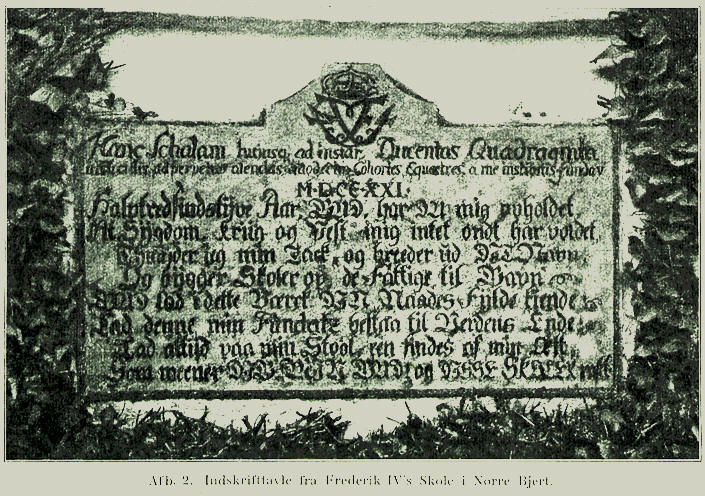 Hanc Scholam hujusq, ad instar, Ducentas Quadraginta
in ad perpetuo alendas Cohortes Equestres a me
MDCCXXI.
Halvfredsindstyve Aar, GUD, har Du mig opholdet,
At Sygdom, Kriig og Pest mig intet ondt har voldet,
jeg min Tack, og breeder ud DIT Navn,
Og bygger Skoler op, de Fattige til Gavn
GUD lad i dette Værck DIN Naades Fylde kiende
Lad denne min Fundatz bestaa til Verdens Ende
Lad altid paa min Stool een findes af min Æt,
Som meener DIG MIN GUD og DISSE SKOLER ret
Afb. 2. Indskrifttavle fra Frederik IV's Skole i Nørre Bjert.